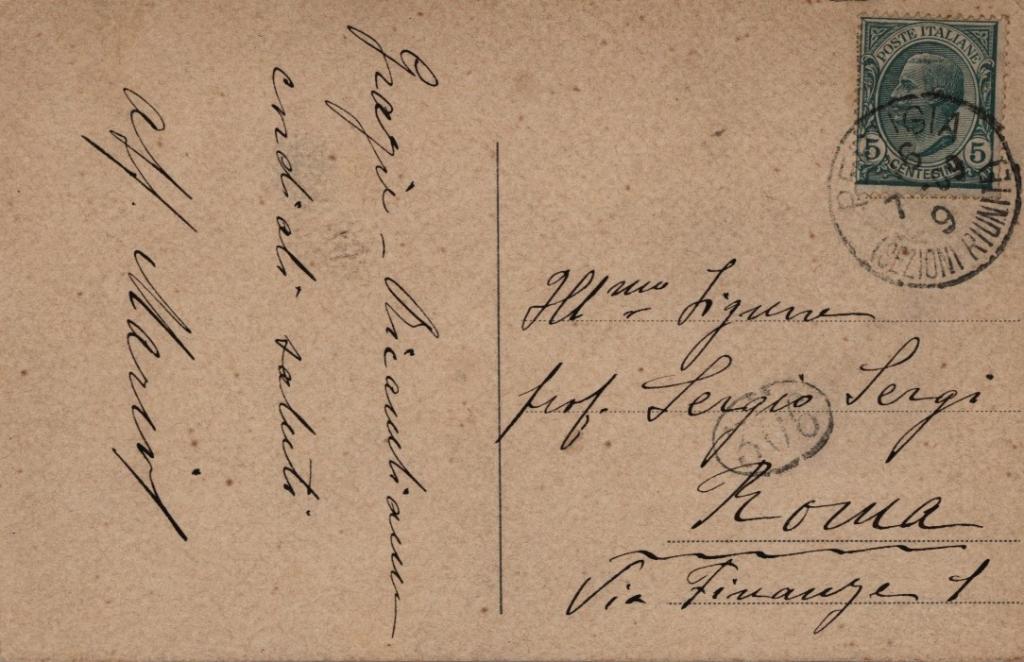 Grazie – Ricambiamo
cordiali saluti
aff. Marinj
POSTE ITALIANE
5 CENTESIMI 5
7 9
(SEZIONI RIUNITE)
Ill mo Signore
prof. Sergio Sergi
Roma
Via Finanze 1